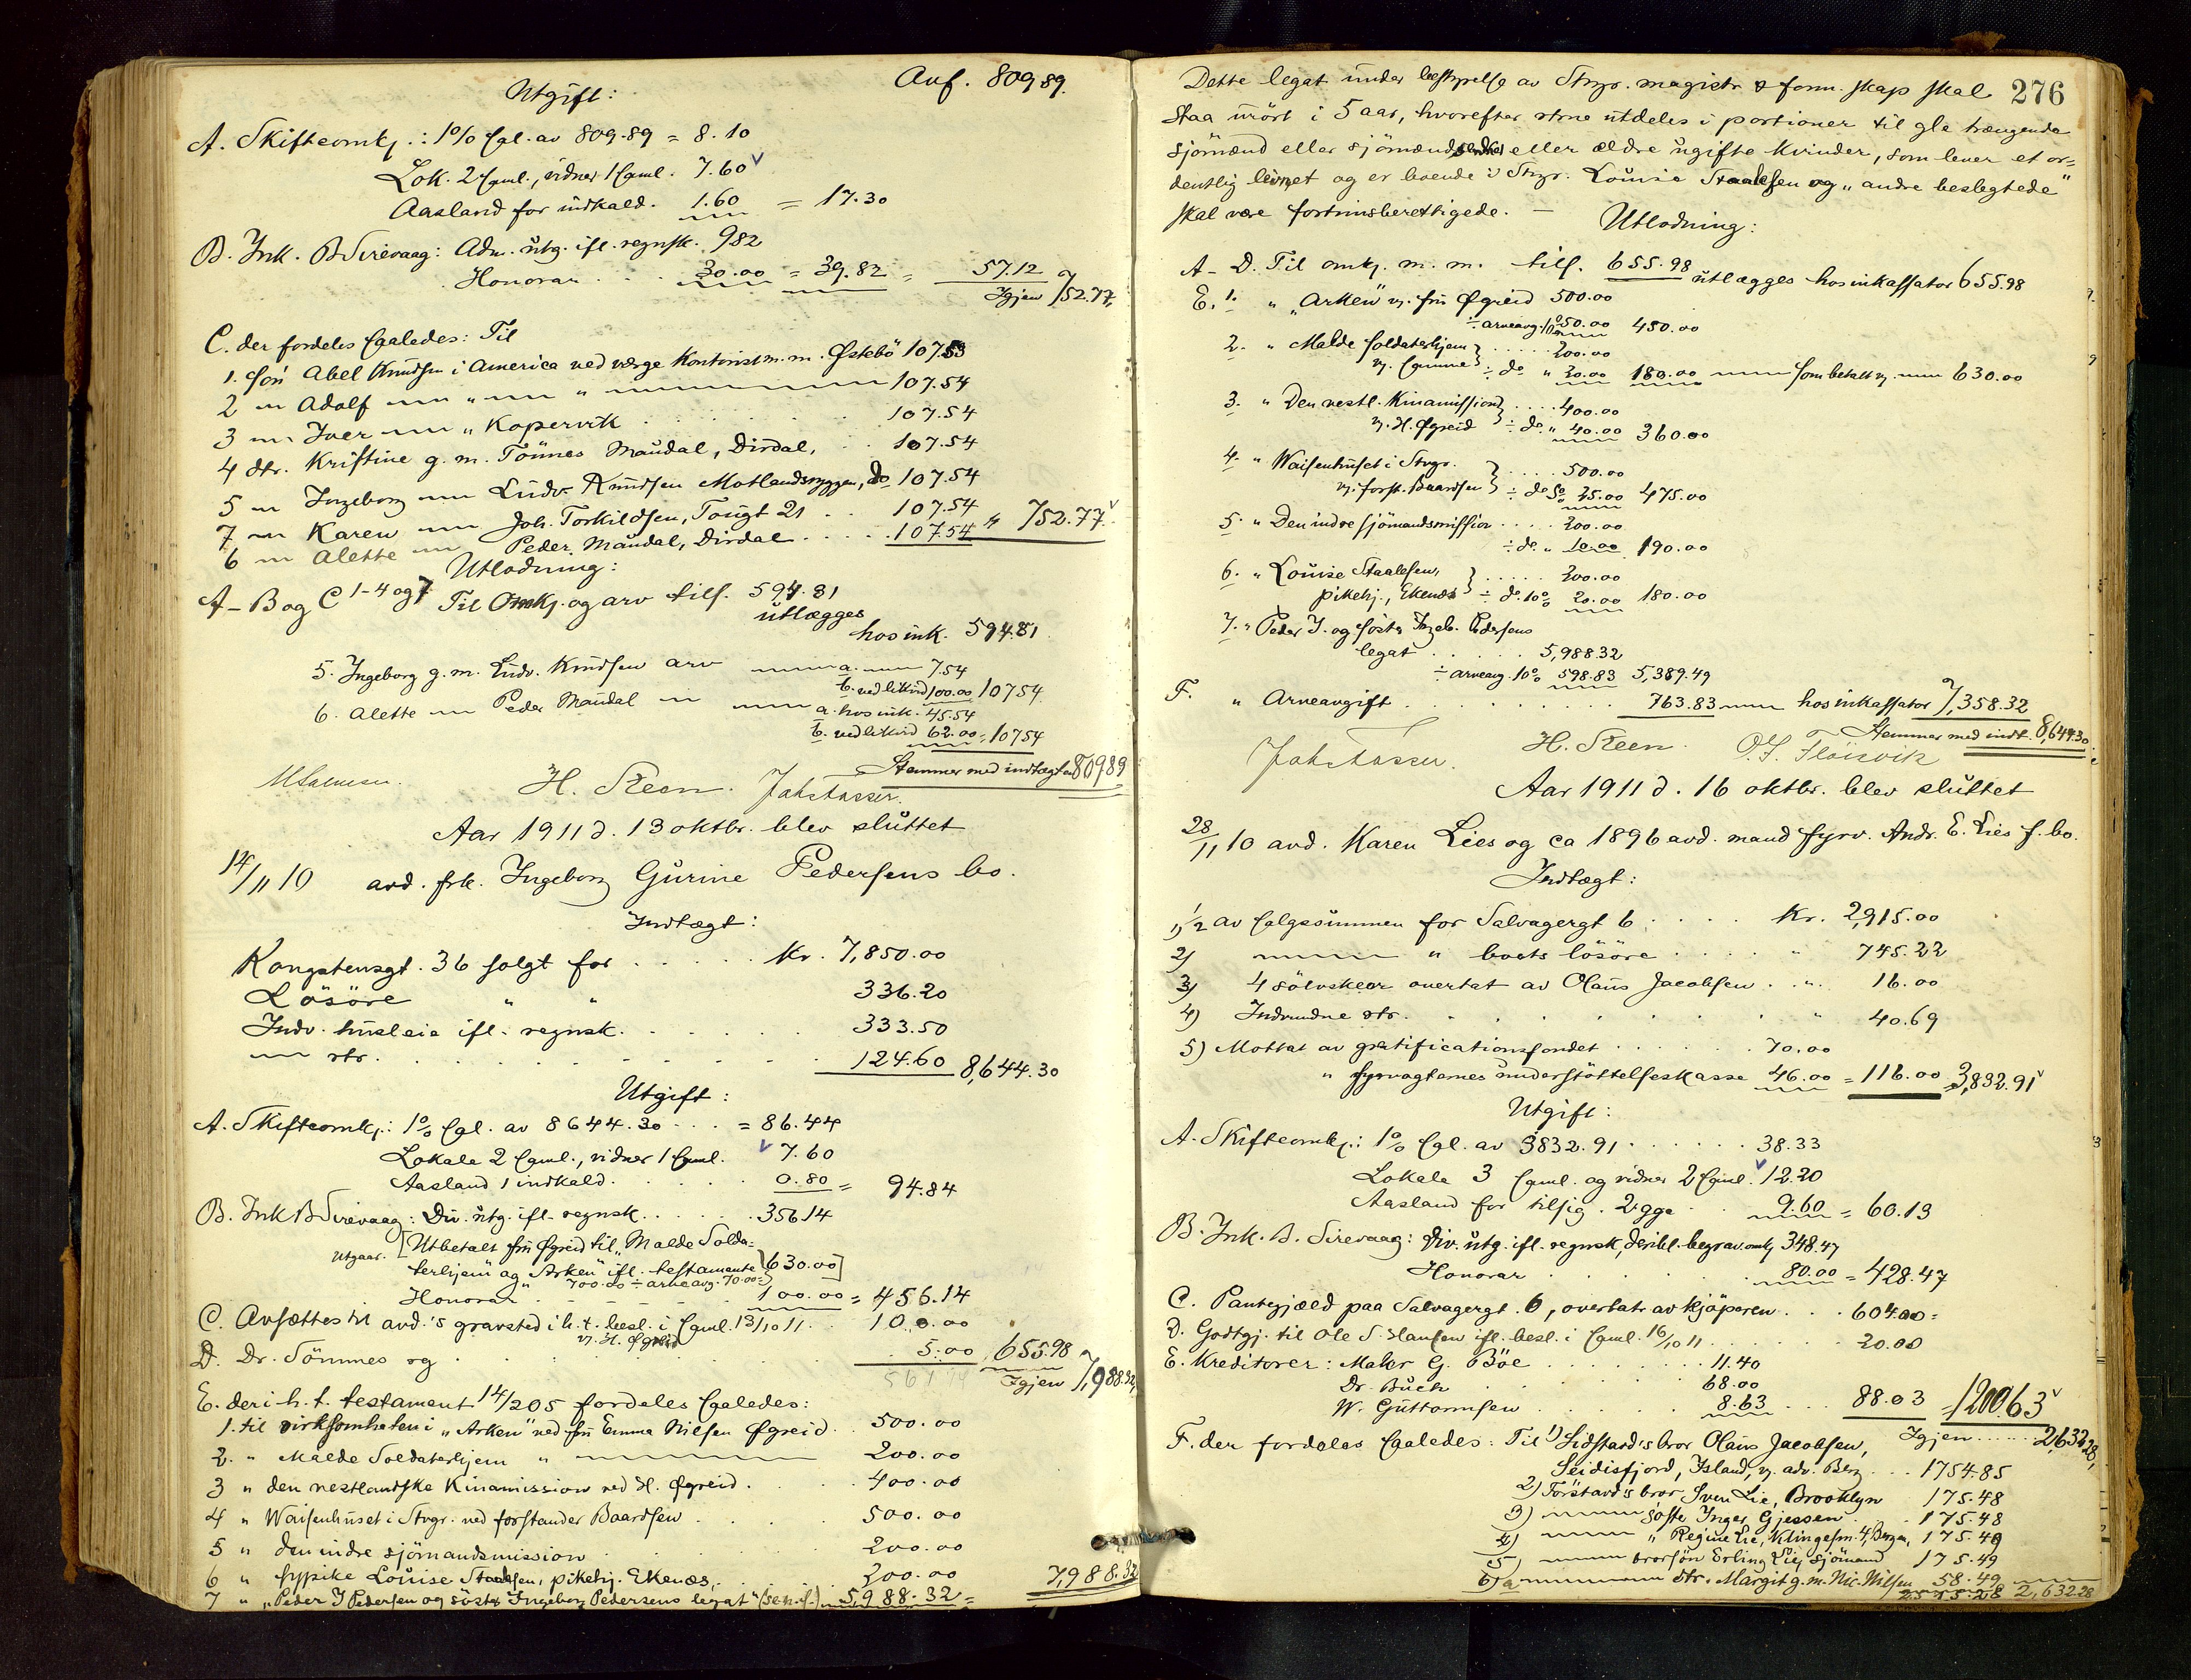 Utgift: Anf. 809.89.
A. Skifteomkj.: 1% sgl. av 809.89 = 8.10
Lok. 2 saml., vidner 1 saml. 7.60
Aasland for indkald. 1.60 = 17.30
B. Ink. B Sirevaag: Adm. utg. ifl. regnsk. 9.82
Honorar . . 30.00 = 39.82 = 57.12
Igjen 752.77,
C. der fordeles saaledes: Til
1. søn Abel Knudsen i America ved værge Kontorist m. m. Østebö 107.53
2 — Adolf — " — " — 107.54
3 — Iver — " Kopervik . . . 107.54
4 dtr. Kristine g. m. Tönnes Maudal, Dirdal, . . 107.54
5 — Ingeborg — Ludv. Knudsen Motlandsryggen, do 107.54
7 — Karen — Joh. Torkildsen, Tougt 21 . . 107.54
6 — Alette — Peder Maudal, Dirdal . . . . . 107.54 752.77
Utlodning:
A – B og C 1-4 og 7 Til Omkj. og arv tils. 594.81
utlægges
hos ink. 594.81
5. Ingeborg g. m. Ludv. Knudsen arv — a. — 7.54
b. ved likvid 100.00 107.54
6. Alette — Peder Maudal — — a. hos ink. 45.54
b. ved likvid 62.00 = 107.54
Stemmer med indtægten 809.89
H. Steen.
Aar 1911 d. 13 oktbr. blev sluttet
14/11 10 avd. frk. Ingeborg Gurine Pedersens bo.
Indtægt:
Kongstensgt. 36 solgt for . . . . . Kr. 7,850.00
Lösöre " " 336.20
Indv. husleie ifl. regnsk. . . . . . 333.50
— rtr. . . . . . . . . . 124.60 8,644.30
Utgift:
A. Skifteomkj.: 1% sgl. av 8644.30 . . . = 86.44
Lokale 2 saml., vidner 1 saml. 7.60
Aasland 1 indkald. . . . . . 0.80 = 94.84
B. Ink B Sirevaag: Div. utg. ifl. regnsk. . . . . . 356.14
Utgaar. [Utbetalt fru Øgreid til „Malde Solda=
terhjem" og „Arken" ifl. testamente 630.00]
700.00 ÷ arveavg. 70.00 =
Honorar . . . . . . 100.00 = 456.14
C. Avsættes til avd.'s gravsted i h. t. besl. i saml. 13/10 11 . . 100.00
v. H. Øgreid
D. Dr. Sömmes rg . . . . . . . . 5.00 655.98
Igjen 7,988.32,
E. der i h. t. testament 14/2 05 fordeles saaledes:
1. til virksomheten i „Arken" ved fru Emma Nilsen Øgreid . . 500.00
2. " Malde Soldaterhjem " — 200.00
3 " den vestlandske Kinamission ved H. Øgreid . . 400.00
4 " Waisenhuset i Stvgr. ved forstander Baardsen . . . 500.00
5 " den indre sjömandsmission . . . . . 200.00
6 " sypike Louise Staalesen, pikehj. Ekenæs, . . 200.00 7,988.32
7 " „Peder J Pedersen og söster Ingeborg Pedersens legat" (se n. s.) 5,988.32 =
276
Dette legat under bestyrelse av Stvgr. magistr & form. skap skal
staa urört i 5 aar, hvorefter rtrne utdeles i portioner til gle trængende
sjömænd eller sjömænds enker eller ældre ugifte kvinder, som lever et or=
dentlig levnet og er boende i Stvgr. Louise Staalesen og „andre beslegtede"
skal være fortrinsberettigede. — Utlodning:
A – D. Til omkj. m. m. tils. 655.98 utlægges hos inkassator 655.98
E. 1. " „Arken" v. fru Øgreid 500.00
÷ arveavg. 10% 50.00 450.00
2. " Malde soldaterhjem . . . . . 200.00
v. samme ÷ do " 20.00 180.00 — som betalt v. — 630.00
3. " Den vestl. Kinamission . . . . 400.00
v. H. Øgreid ÷ do " 40.00 360.00
4. " Waisenhuset i Stvgr. . . . . 500.00
v. forst. Baardsen ÷ do 5% 25.00 475.00
5. " Den indre sjömandsmission . . . . . 200.00
÷ do. " 10.00 190.00
6. " Louise Staalesen, . . . . . 200.00
pikehj., Ekenæs ÷ do. 10% 20.00 180.00
7. " Peder J. og söster Ingeb. Pedersens
legat . . . . . . 5,988.32
÷ arveavg. 10% 598.83 5,389.49
F. " Arveavgift . . . . . . . . 763.83 — hos inkassator 7,358.32
Stemmer med indt. 8,644.30
H. Steen. O. T. Flöisvik
Aar 1911 d. 16 oktbr. blev sluttet
28/11 10 avd. Karen Lies og ca 1896 avd. mand fyrv. Andr. E. Lies f. bo.
Indtægt:
1) 1/2 av salgssummen for Salvagergt 6 . . . . Kr. 2,915.00
2) — " boets lösöre . . . . . " 745.22
3) 4 sölvskeer overtat av Olaus Jacobsen . . " . 16.00
4) Indvundne rtr. . . . . . . . " 40.69
5) Mottat av gratificationsfondet . . . . . . 70.00
" fyrvagternes understöttelseskasse 46.00 = 116.00 3,832.91
Utgift:
A. Skifteomkj.: 1% sgl. av 3832.91 . . . . . . . 38.33
Lokale 3 saml. og vidner 2 saml. 12.20
Aasland for tilsig. 2 gge . . 9.60 = 60.13
B. Ink. B. Sirevaag: Div. utg. ifl. regnsk, deribl. begrav. omkj 348.47
Honorar . . . . . . . 80.00 = 428.47
C. Pantegjæld paa Salvagergt. 6, overtat av kjöperen . . . 604.00 =
D. Godtgj. til Ole S. Hansen ifl. besl. i saml. 16/10 11 . . . . . 20.00
E. Kreditorer: Maler G. Böe . . . . . . . . 11.40
Dr. Buch . . . . . . 68.00
W. Guttormsen . . . . . . 8.63 . . . 88.03 = 1200.63
F. der fordeles saaledes: Til 1) Sidstavd's bror Olaus Jacobsen, Igjen . . . . . . 2,632.28,
Seidisfjord, Island, v. adv. Berg . . . 1754.85
2) Förstavd's bror Sven Lie, Brooklyn 175.48
3) — söster Inger Gjessen . . 175.48
4) — " Regine Lie, Klingesm. 4, Bergen, 175.49
5) — brorsön Erling Lie, sjömand 175.49
6) a — dtr. Margit g. m. Nic. Nilsen 58.49
2515.28 2,632.28